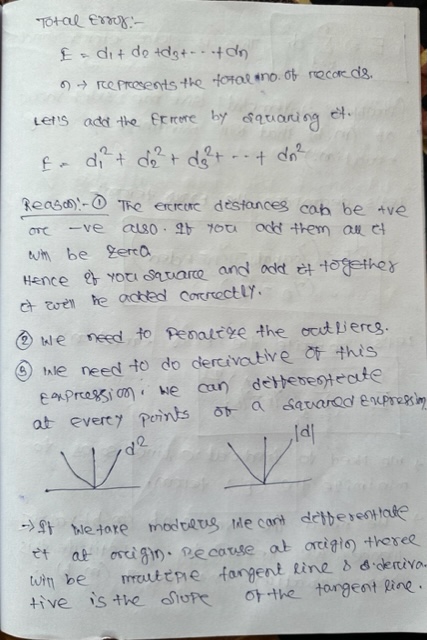 Total Error:-
E = d1 + d2 + d3 + --- + dn
n → represents the total no. of records.
Let's add the Error by squaring it.
E = d1² + d2² + d3² + --- + dn²
Reason:- ① The error distances can be +ve
or -ve also. If you add them all it
will be zero.
Hence if you square and add it together
it will be added correctly.
② We need to Penalize the outliers.
③ We need to do derivative of this
Expression. We can differentiate
at every points of a squared Expression
d²
|d|
→ If we take modulus, we can't differentiate
it at origin. Because at origin there
will be multiple tangent line & deriva-
tive is the slope of the tangent line.